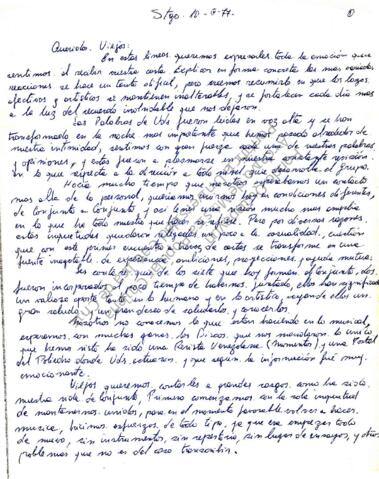 Stgo. 10-8-77. ①
Queridos Viejos:
En estas líneas queremos expresarles toda la emoción que
sentimos al recibir nuestra carta. Explicar en forma concreta las mas variadas
reacciones se hace un tanto dificil, pero creemos resumirlo en que los lazos
afectivos y artísticos se mantienen inalterables, y se fortalecen cada dia mas
a la luz del recuerdo inolvidable que nos dejaron.
Las Palabras de Uds fueron leidas en voz alta y se han
transformado en la noche mas impactante que hemos pasado alrededor de
nuestra intimidad, sentimos con gran fuerza cada una de nuestras palabras
y opiniones, y estas fueron a plasmarse en nuestra constante
en lo que respecta a la direccion a todo nivel que el Grupo.
Hacia mucho tiempo que nosotros un contacto
mas alla de lo personal, queriamos en condiciones diferentes,
de Conjunto a Conjunto y asi tener una mucho mas amplia
en lo que ha sido nuestro que hacer se refiere. Pero por diversas razones
estas inquietudes quedaron relegadas un poco a la casualidad, cuestion
que con este primer encuentro a traves de cartas se transforme en una
fuente inagotable de experiencias, ambiciones, proyecciones y ayuda mutua.
Les contaré que de los siete que hoy forman el Conjunto, dos
fueron incorporados al poco tiempo de habernos juntado, ellos han significado
un valioso aporte en lo humano y en lo artistico, vayan de ellos un
gran saludo y un gran deseo de saludarlos y conocerlos.
Nosotros no conocemos lo que estan haciendo en lo musical,
esperamos con muchas ganas los Discos que nos mandaron, lo unico
que hemos visto ha sido una Revista Venezolana (Momento), y una Postal
del Poliedro donde Uds. actuaron, y que segun la informacion fue muy
emocionante.
Viejos queremos contarles a grandes rasgos como ha sido
nuestra vida de Conjunto, Primero comenzamos con la sola inquietud
de mantenernos unidos, para en el momento favorable volver a hacer
musica, hicimos esfuerzos de todo tipo, ya que era empezar todo
de nuevo, sin instrumentos, sin repertorio, sin lugar de ensayo, y otros
problemas que no es del caso transcribir.